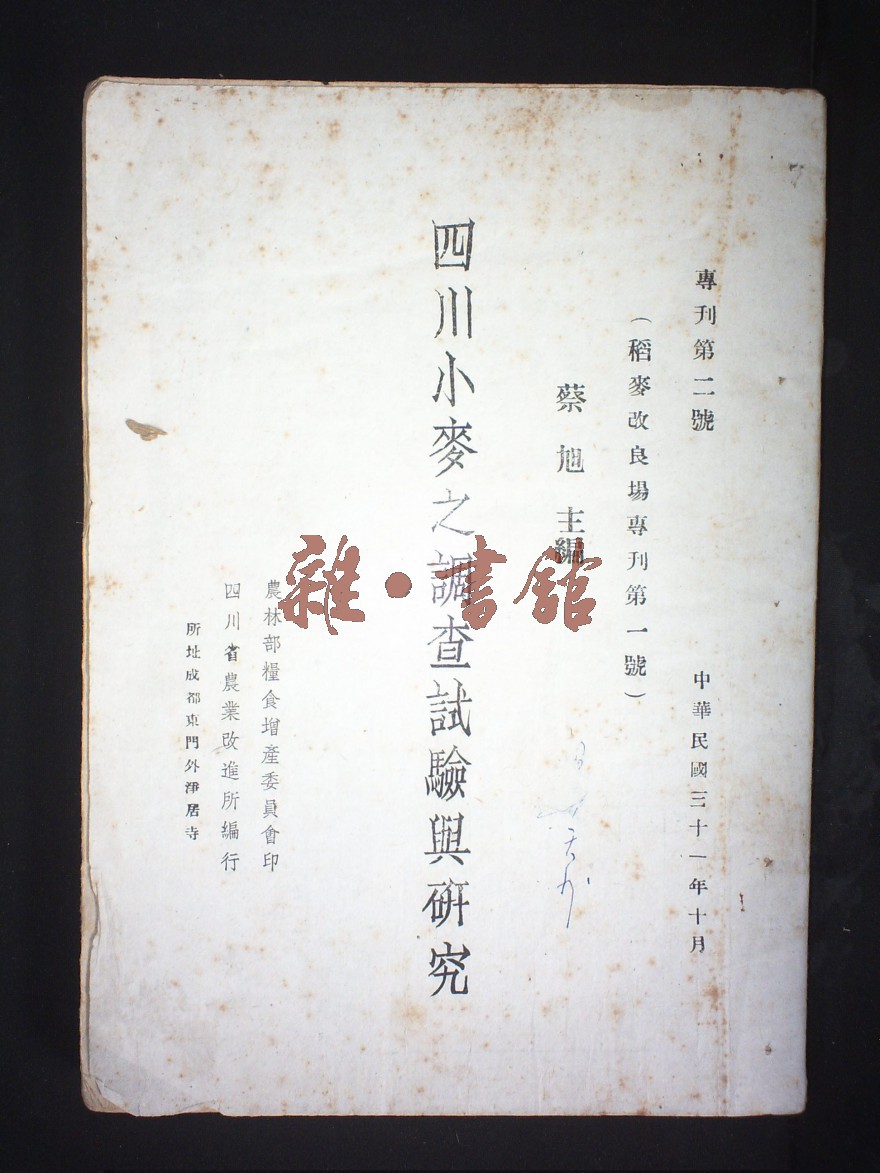 專刊第二號
中華民國三十一年十月
（稻麥改良場專刊第一號）
蔡旭主編
四川小麥之調查試驗與研究
農林部糧食增產委員會印
四川省農業改進所編行
所址成都東門外淨居寺
雜·書館